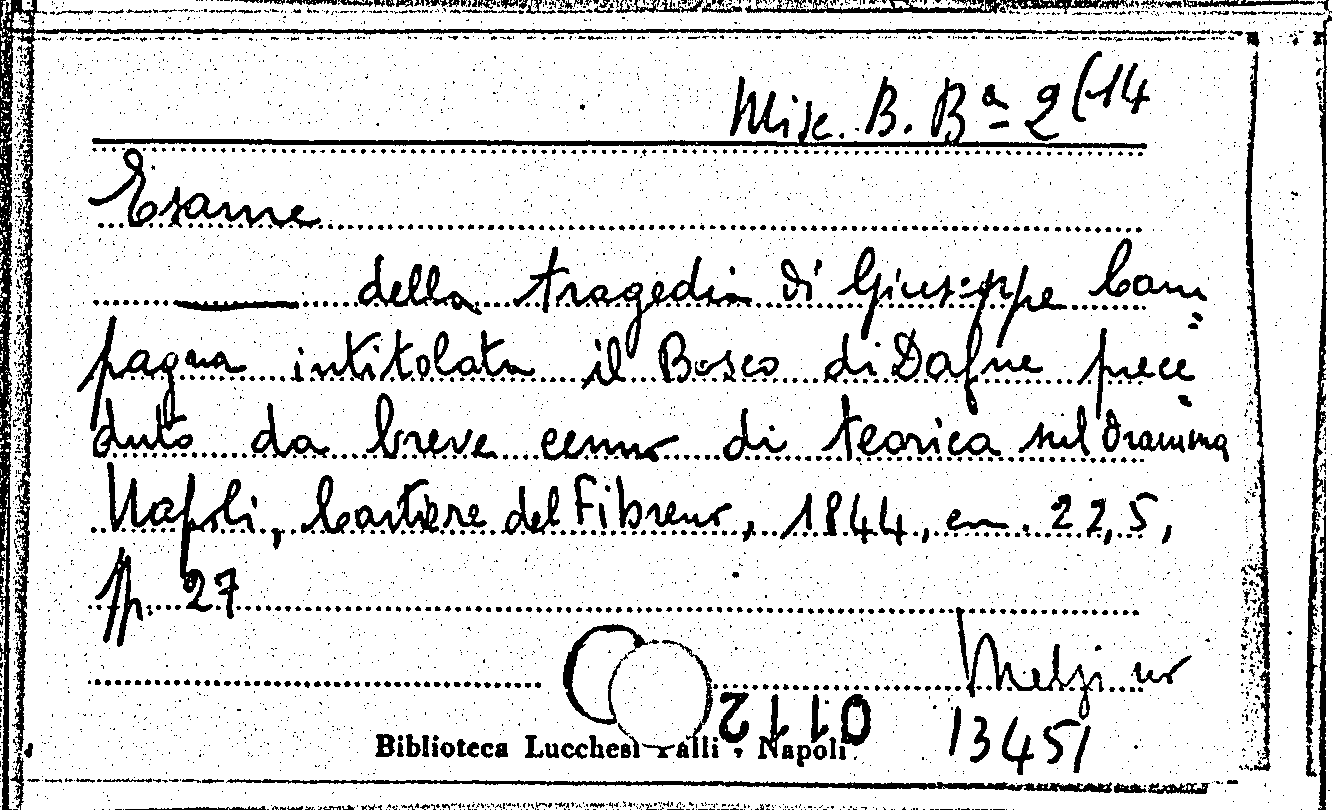 Misc. B. Bª 2(14
Esame
della tragedia di Giuseppe Cam=
pagna intitolata il Bosco di Dafne prece=
duto da breve cenno di teorica sul dramma
Napoli, Cartiere del Fibreno, 1844, cm. 22,5,
pp. 27
Melzi no
13451
0112
Biblioteca Lucchesi Palli • Napoli